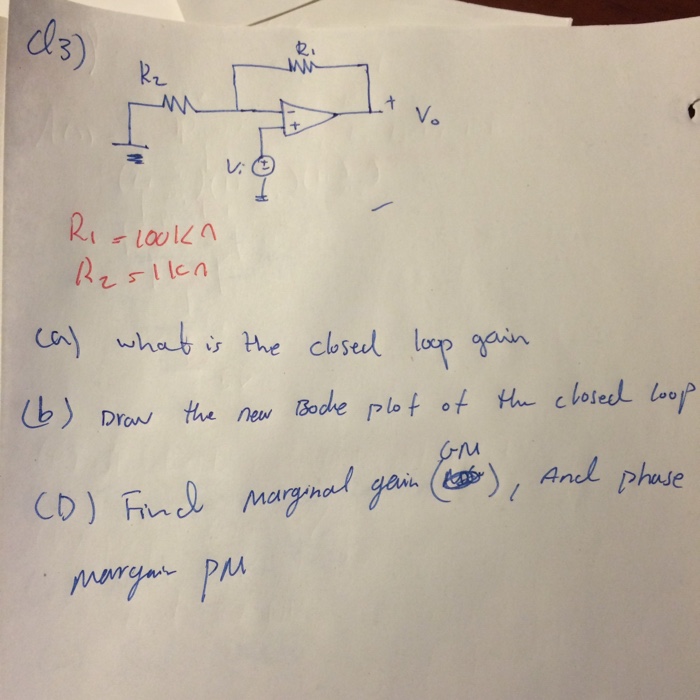 Q3)
R1
R2
-
+
+
Vo
Vi
R1 = 100KΩ
R2 = 1KΩ
(a) what is the closed loop gain
(b) Draw the new Bode plot of the closed loop
GM
(D) Find marginal gain ( ), And phase
margain PM